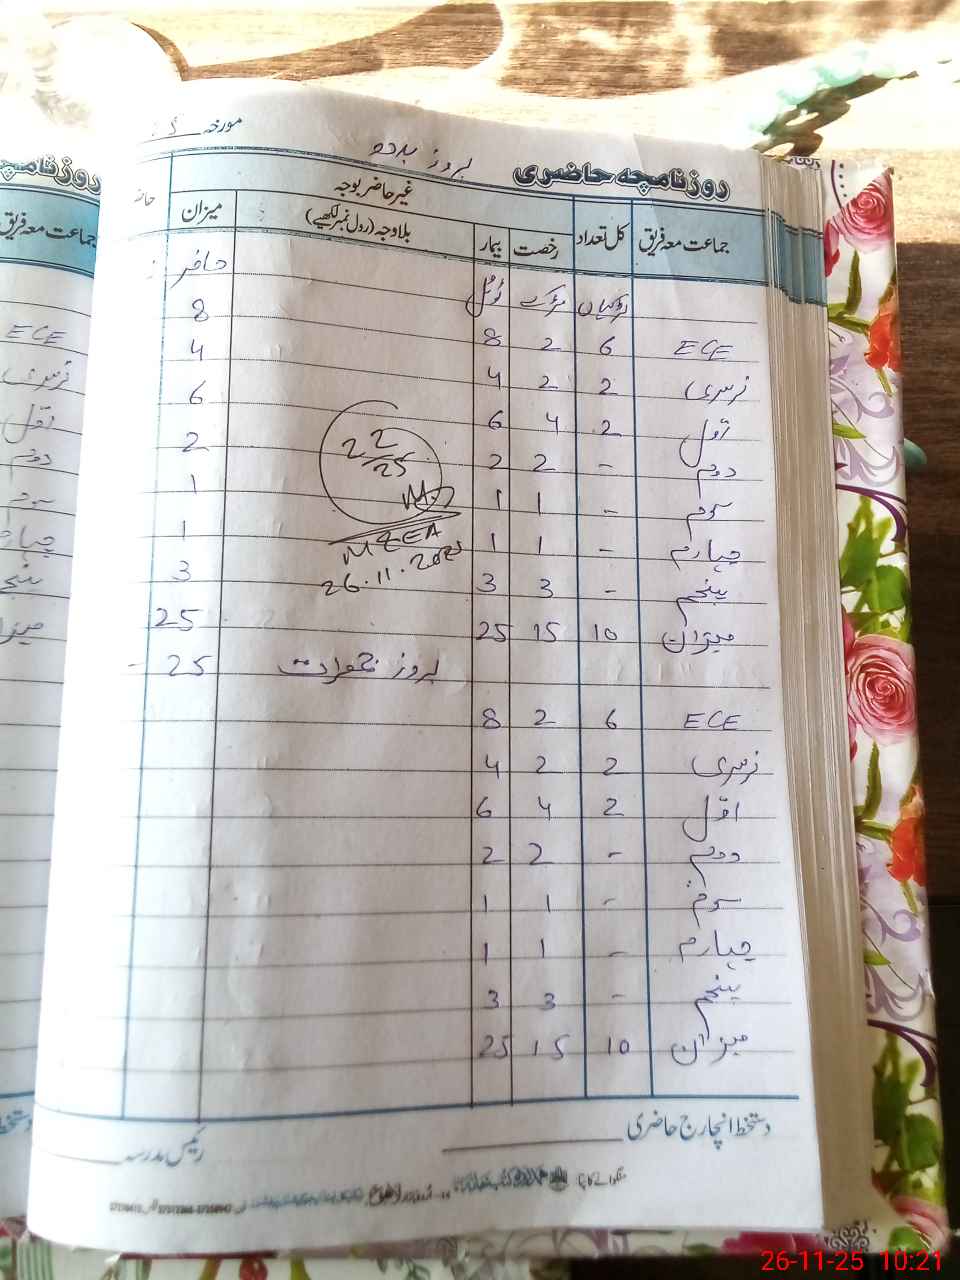 مورخہ
بروز بدھ
روزنامچہ حاضری
جماعت معہ فریق کل تعداد غیر حاضر بوجہ میزان
رخصت بیمار بلاوجہ (رول نمبر لکھیے)
لڑکیاں لڑکے ٹوٹل حاضر
8
ECE 6 2 8 4
نرسری 2 2 4 6
اول 2 4 6 2
دوم - 2 2 1
سوم - 1 1 1
چہارم - 1 1 3
پنجم - 3 3
میزان 10 15 25 25
22
25
MZEA
26.11.2025
بروز جمعرات 25
ECE 6 2 8
نرسری 2 2 4
اول 2 4 6
دوم - 2 2
سوم - 1 1
چہارم - 1 1
پنجم - 3 3
میزان 10 15 25
دستخط انچارج حاضری
رئیس مدرسہ
منگوانے کا پتا
روزنامچہ
جماعت معہ فریق
ECE
نرسری
اول
دوم
سوم
پنجم
26-11-25 10:21